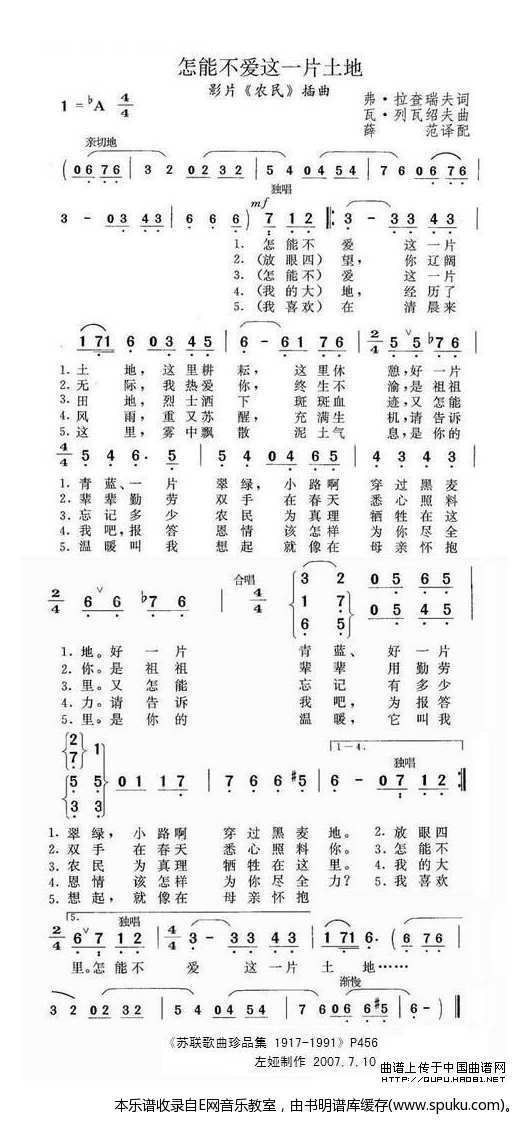 怎能不爱这一片土地
影片《农民》插曲
1 = ♭A 4/4
弗·拉查瑞夫词
瓦·列瓦绍夫曲
薛 范译配
亲切地
( 0 6 7 6 | 3 2 0 2 3 2 | 5 4 0 4 5 4 | 7 6 0 6 7 6 |
独唱
mf
3 - 0 3 4 3 | 6· 6 6 6 ) 7 1 2 ‖: 3 - 3 3 4 3 |
1. 怎能不 爱 这一片
2. (放眼四) 望, 你辽阔
3. (怎能不) 爱 这一片
4. (我的大) 地, 经历了
5. (我喜欢) 在 清晨来
1 7 1 6 0 3 4 5 | 6 - 6 1 7 6 | 2/4 5 ∨ 5 ♭7 6 |
1. 土 地, 这里耕 耘, 这里休 憩, 好一片
2. 无 际, 我热爱 你, 终生不 渝, 是祖祖
3. 田 地, 烈士洒 下 斑斑血 迹, 又怎能
4. 风 雨, 重又苏 醒, 充满生 机, 请告诉
5. 这 里, 雾中飘 散 泥土气 息, 是你的
4/4 5 4 6· 5 | 5 4 0 4 6 5 | 4 3 3 2 3 4 |
1. 青蓝、一片 翠绿, 小路啊 穿过黑麦
2. 辈辈勤劳 双手 在春天 悉心照料
3. 忘记多少 农民 为真理 牺牲在这
4. 我吧, 报答 恩情 该怎样 为你尽全
5. 温暖叫我 想起 就像在 母亲怀抱
2/4 6 ∨ 6 ♭7 6 | 合唱 4/4 3 2 0 5 6 5
1 7 0 5 4 5
6 5
1. 地。好一片 青蓝、 好一片
2. 你。是祖祖 辈辈 用勤劳
3. 里。又怎能 忘记 有多少
4. 力。请告诉 我吧, 为报答
5. 里。是你的 温暖, 它叫我
1-4.
独唱
2 1
7
5 5 0 1 1 7 | 7 6 6 6 ♯5 | 6 - 0 7 1 2 :‖
3 3
1. 翠绿, 小路啊 穿过黑麦 地。 2. 放眼四
2. 双手 在春天 悉心照料 你。 3. 怎能不
3. 农民 为真理 牺牲在这 里。 4. 我的大
4. 恩情 该怎样 为你尽全 力? 5. 我喜欢
5. 想起, 就像在 母亲怀抱
5.
独唱
2/4 6 ∨ 7 1 2 | 4/4 3 - 3 3 4 3 | 1 7 1 6· ( 6 7 6 |
里。怎能不 爱 这一片 土 地……
渐慢
3 2 0 2 3 2 | 5 4 0 4 5 4 | 7 6 0 6 6 ♯5 | 6 - ) ‖
《苏联歌曲珍品集 1917-1991》P456
左娅制作 2007.7.10
曲谱上传于中国曲谱网
http://QUPU.HAO81.NET
本乐谱收录自E网音乐教室，由书明谱库缓存(www.spuku.com)。